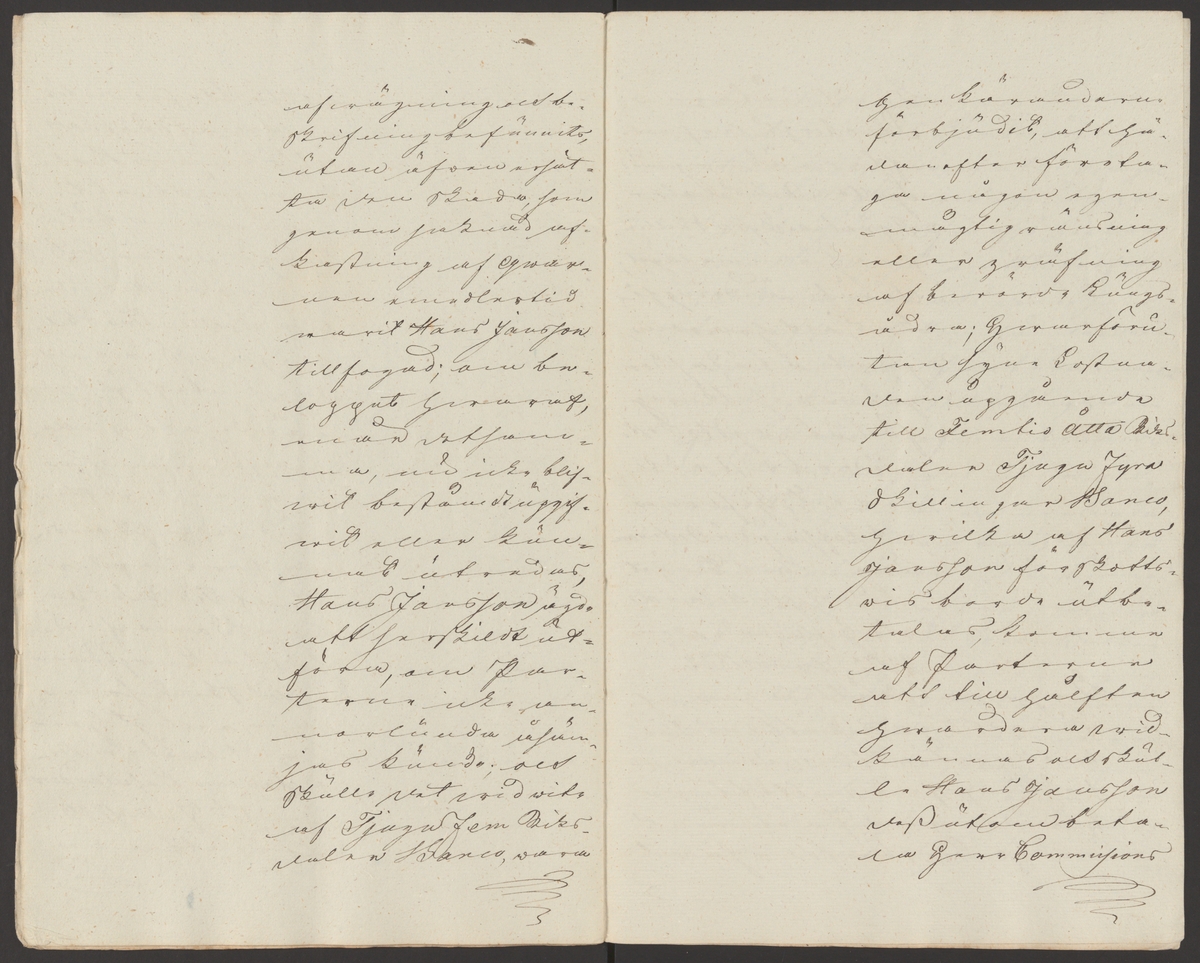 afvägning och be-
skrifning befunnits,
utan äfven ersät-
ta den skada, som
genom saknad af-
kastning af qvar-
nen emedlertid
varit Hans Jansson
tillfogad; om be-
loppet hvaraf,
enär detsam-
ma, nu icke blif-
vit bestämdt uppgif-
vit eller kun-
nat utredas,
Hans Jansson ägde
att särskildt ut-
föra, om Par-
terne icke an-
norlunda åsäm-
jas kunde; och
skulle det vid vite
af Tjugu fem Riks-
daler Banco, vara
Gen Käranderne
förbjudit, att hä-
danefter företa-
ga någon egen-
mägtigränsning
eller gräfning
af berörde Kungs-
ådra; hvarföru-
tan syne Kostna-
den uppgående
till Femtio Åtta Riks-
daler Tjugu Fyra
skillingar Banco,
hvilka af Hans
Jansson förskotts-
vis borde utbe-
talas, komme
af Parterne
att till hälften
hvardera vid-
kännas och skul-
le Hans Jansson
dessutom beta-
la Herr Commissions